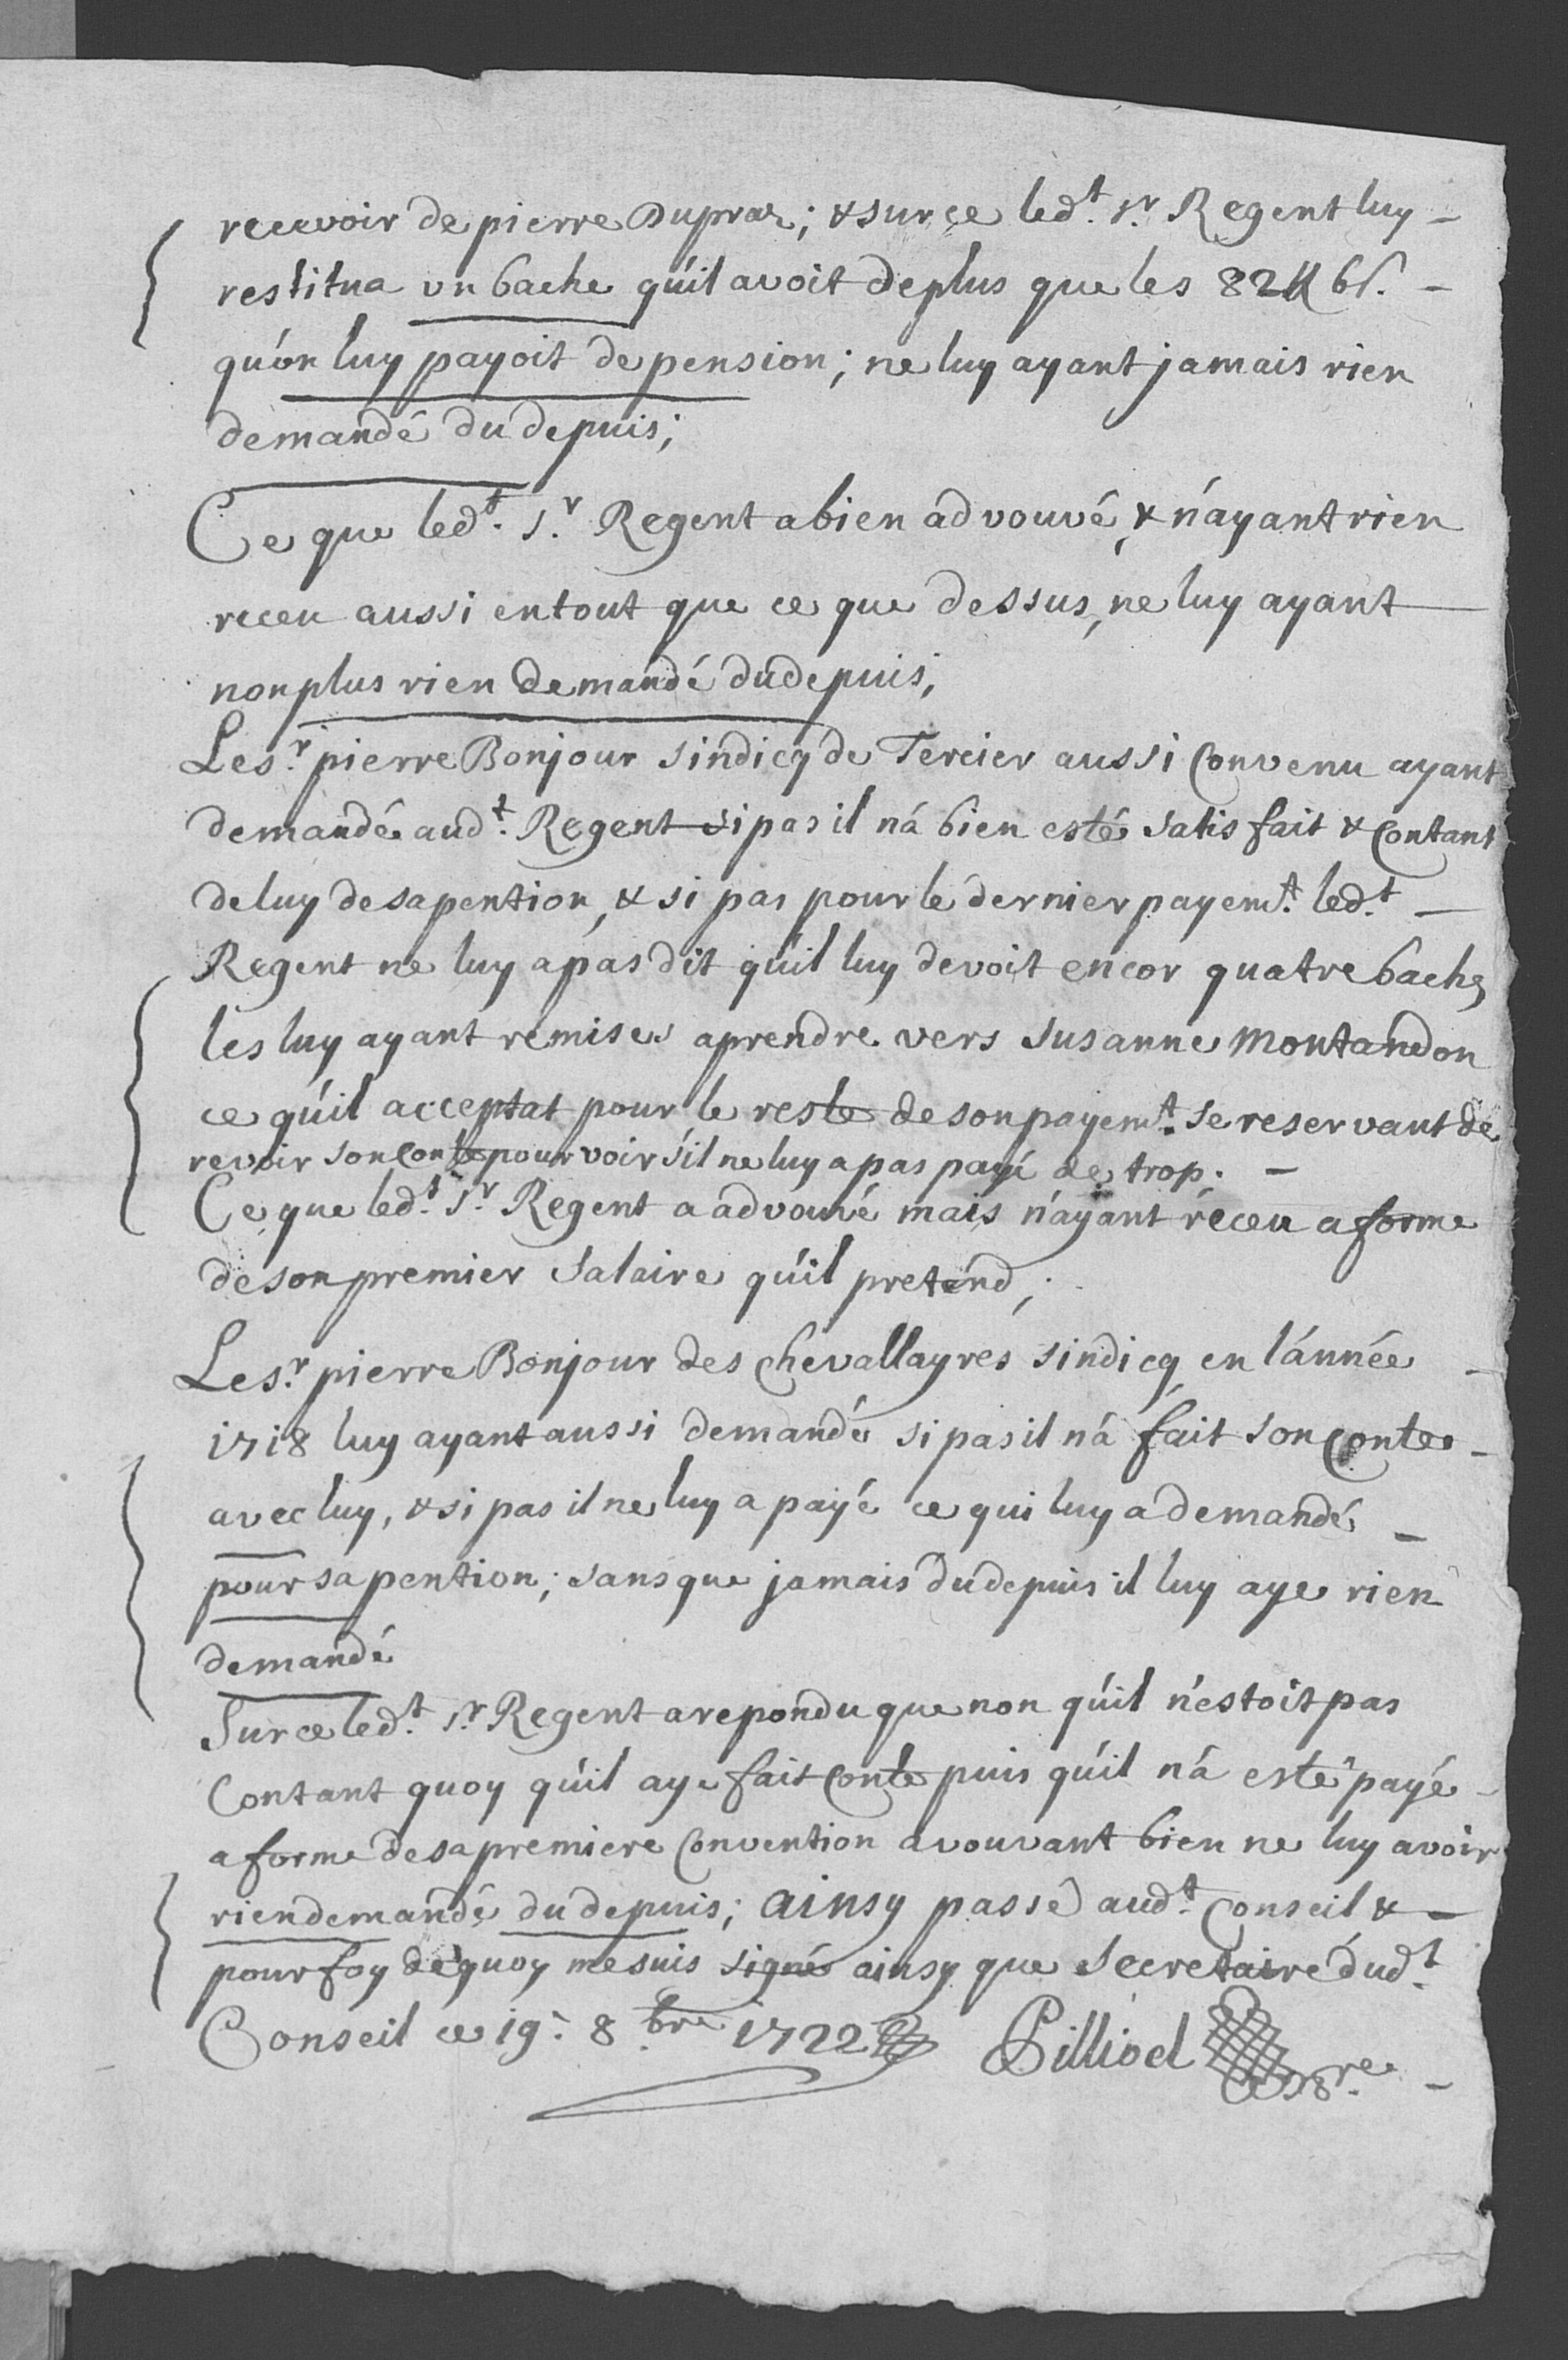 recevoir de pierre Dupraz; & sur ce led.t s.r Regent luy -
restitua un bache qu'il avoit de plus que les 82 ll 6 s. -
qu'on luy payoit de pension; ne luy ayant jamais rien
demandé du depuis;
Ce que led.t s.r Regent a bien advouvé, & n'ayant rien
receu aussi en tout que ce que dessus, ne luy ayant
non plus rien demandé dudepuis;
Le s.r pierre Bonjour sindicq de Tercier aussi Convenu ayant
demandé aud.t Regent si pas il n'a bien esté satisfait & Contant
de luy de sa pention, & si pas pour le dernier payem.t led.t -
Regent ne luy a pas dit qu'il luy devoit encor quatre baches
les luy ayant remises aprendre vers Susanne Montandon
ce qu'il acceptat pour le reste de son payem.t se reservant de
revoir son Conte pour voir s'il ne luy a pas payé de trop. -
Ce que led.t s.r Regent a advouvé mais n'ayant receu a forme
de son premier Salaire qu'il pretend;
Le s.r pierre Bonjour des Chevallayres sindicq en l'année -
1718 luy ayant aussi demandé si pas il n'a fait son Conte -
avec luy, & si pas il ne luy a payé ce qui luy a demandé -
pour sa pention; sans que jamais dudepuis il luy aye rien
demandé
Sur ce led.t s.r Regent a repondu que non qu'il n'estoit pas
Contant quoy qu'il aye fait Conte puis qu'il n'a esté payé -
a forme de sa premiere Convention avouvant bien ne luy avoir
rien demandé du depuis; ainsy passé aud.t Conseil & -
pour foy de quoy me suis signé ainsy que Secretaire dud.t
Conseil ce 19.e 8.bre 1722 Pilliod